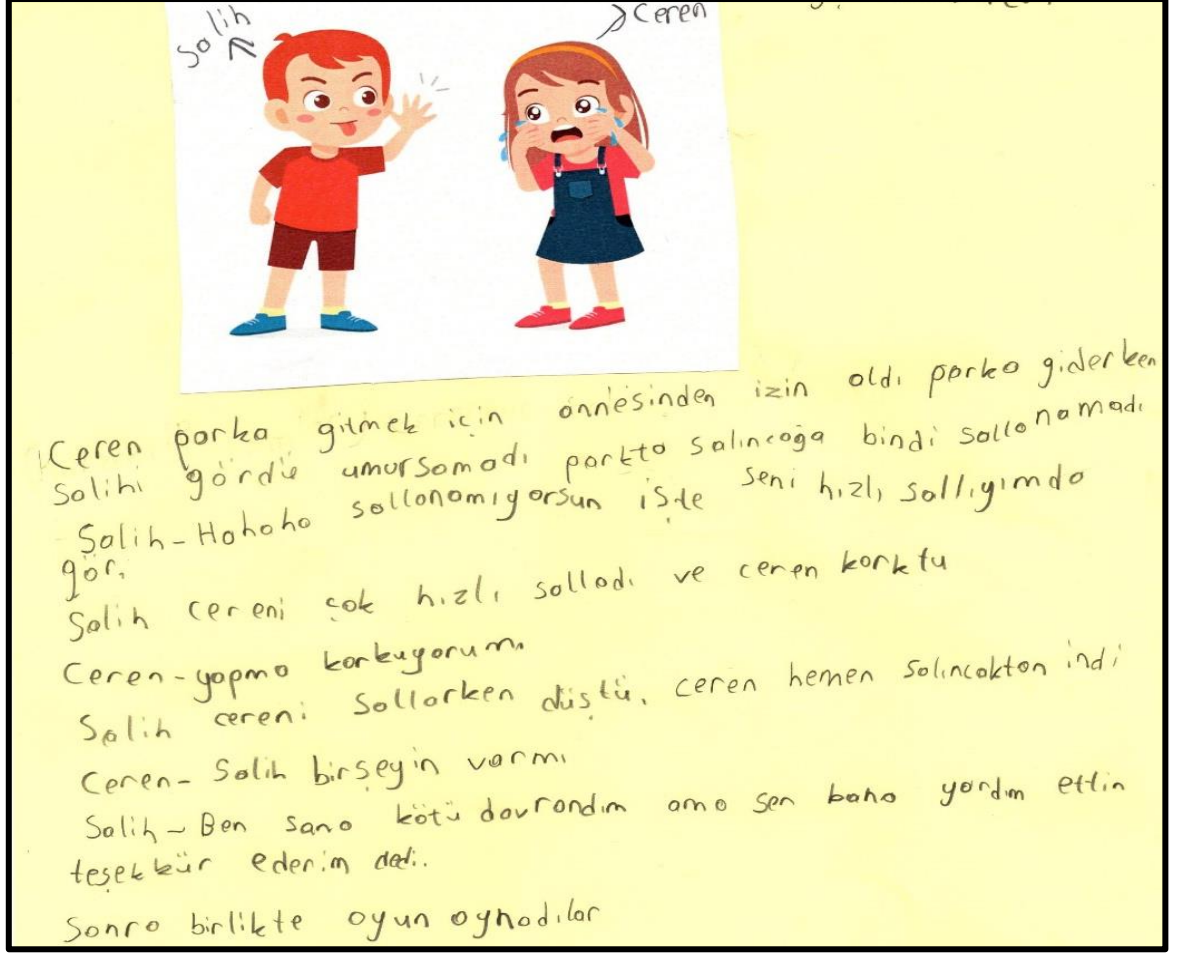 Salih
Ceren
Ceren parka gitmek için annesinden izin aldı parka giderken
Salihi gördü umursamadı parkta salıncağa bindi sallanamadı
Salih-Hahaha sallanamıyorsun işte seni hızlı sallıyımda
gör.
Salih cereni çok hızlı salladı ve ceren korktu
Ceren-yapma korkuyorum.
Salih cereni sallarken düştü. ceren hemen salıncaktan indi
Ceren- Salih birşeyin varmı
Salih-Ben sana kötü davrandım ama sen bana yardım ettin
teşekkür ederim dedi.
Sonra birlikte oyun oynadılar